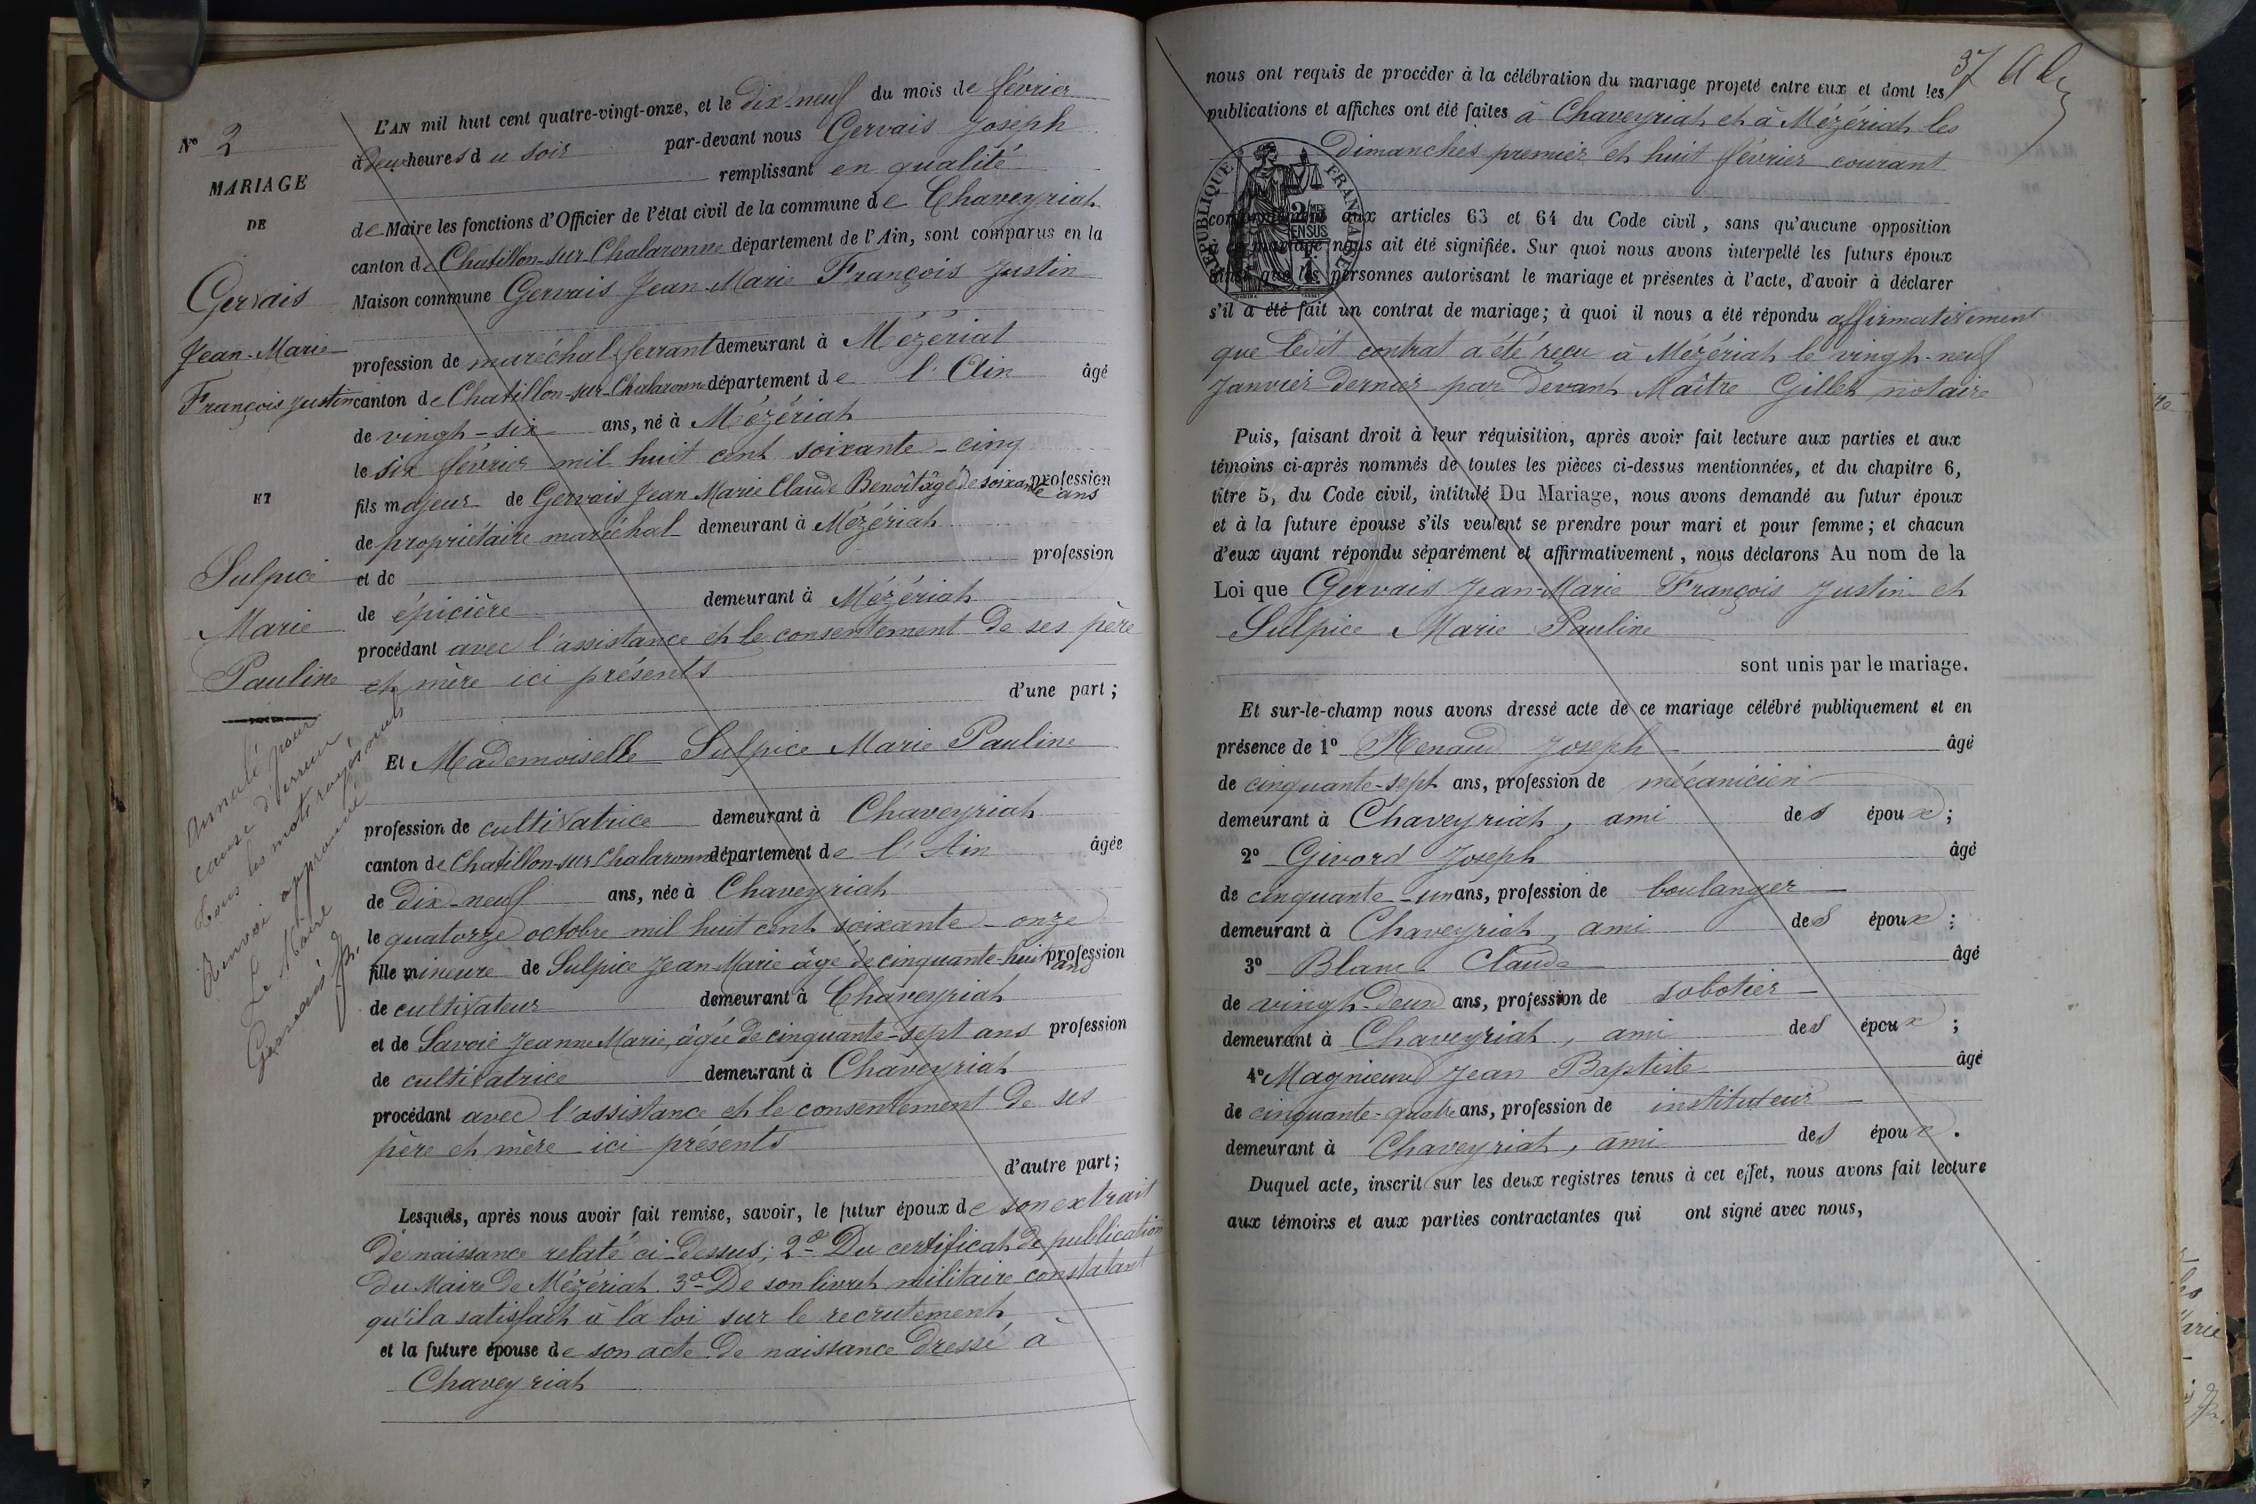 N° 2
MARIAGE
DE
Gervais
Jean-Marie
François Justin
ET
Sulpice
Marie
Pauline
Annulé pour
cause d'erreur
tous les mots rayés nuls
Renvoi approuvé
Le Maire
Gervais J.
L'AN mil huit cent quatre-vingt-onze, et le dix-neuf du mois de février
à deux heures du soir par-devant nous Gervais Joseph
remplissant en qualité
de Maire les fonctions d'Officier de l'état civil de la commune de Chaveyriat
canton de Chatillon-sur-Chalaronne département de l'Ain, sont comparus en la
Maison commune Gervais Jean-Marie François Justin
profession de maréchal-ferrant demeurant à Mézériat
canton de Chatillon-sur-Chalaronne département de l'Ain âgé
de vingt-six ans, né à Mézériat
le six février mil huit cent soixante-cinq
fils majeur de Gervais Jean Marie Claude Benoît âgé de soixante ans profession
de propriétaire maréchal demeurant à Mézériat
et de profession
de épicière demeurant à Mézériat
procédant avec l'assistance et le consentement de ses père
et mère ici présents
d'une part ;
Et Mademoiselle Sulpice Marie Pauline
profession de cultivatrice demeurant à Chaveyriat
canton de Chatillon-sur-Chalaronne département de l'Ain âgée
de dix-neuf ans, née à Chaveyriat
le quatorze octobre mil huit cent soixante-onze
fille mineure de Sulpice Jean-Marie âgé de cinquante-huit ans profession
de cultivateur demeurant à Chaveyriat
et de Savoie Jeanne Marie, âgée de cinquante-sept ans profession
de cultivatrice demeurant à Chaveyriat
procédant avec l'assistance et le consentement de ses
père et mère ici présents
d'autre part ;
Lesquels, après nous avoir fait remise, savoir, le futur époux de son extrait
de naissance relaté ci-dessus; 2° Du certificat de publication
du Maire de Mézériat. 3° De son livret militaire constatant
qu'il a satisfait à la loi sur le recrutement
et la future épouse de son acte de naissance dressé à
Chaveyriat
37
nous ont requis de procéder à la célébration du mariage projeté entre eux et dont les
publications et affiches ont été faites à Chaveyriat et à Mézériat les
dimanches premier et huit février courant
RÉPUBLIQUE FRANÇAISE
conformément aux articles 63 et 64 du Code civil, sans qu'aucune opposition
à ce mariage nous ait été signifiée. Sur quoi nous avons interpellé les futurs époux
ainsi que les personnes autorisant le mariage et présentes à l'acte, d'avoir à déclarer
s'il a été fait un contrat de mariage; à quoi il nous a été répondu affirmativement
que ledit contrat a été reçu à Mézériat le vingt-neuf
Janvier dernier par devant Maître Gillet notaire
Puis, faisant droit à leur réquisition, après avoir fait lecture aux parties et aux
témoins ci-après nommés de toutes les pièces ci-dessus mentionnées, et du chapitre 6,
titre 5, du Code civil, intitulé Du Mariage, nous avons demandé au futur époux
et à la future épouse s'ils veulent se prendre pour mari et pour femme; et chacun
d'eux ayant répondu séparément et affirmativement, nous déclarons Au nom de la
Loi que Gervais Jean-Marie François Justin et
Sulpice Marie Pauline
sont unis par le mariage.
Et sur-le-champ nous avons dressé acte de ce mariage célébré publiquement et en
présence de 1° Renaud Joseph âgé
de cinquante-sept ans, profession de mécanicien
demeurant à Chaveyriat, ami des époux ;
2° Givord Joseph âgé
de cinquante-un ans, profession de boulanger
demeurant à Chaveyriat, ami des époux ;
3° Blanc Claude âgé
de vingt-deux ans, profession de sabotier
demeurant à Chaveyriat, ami des époux ;
4° Magnieux Jean Baptiste âgé
de cinquante-quatre ans, profession de instituteur
demeurant à Chaveyriat, ami des époux .
Duquel acte, inscrit sur les deux registres tenus à cet effet, nous avons fait lecture
aux témoins et aux parties contractantes qui ont signé avec nous,